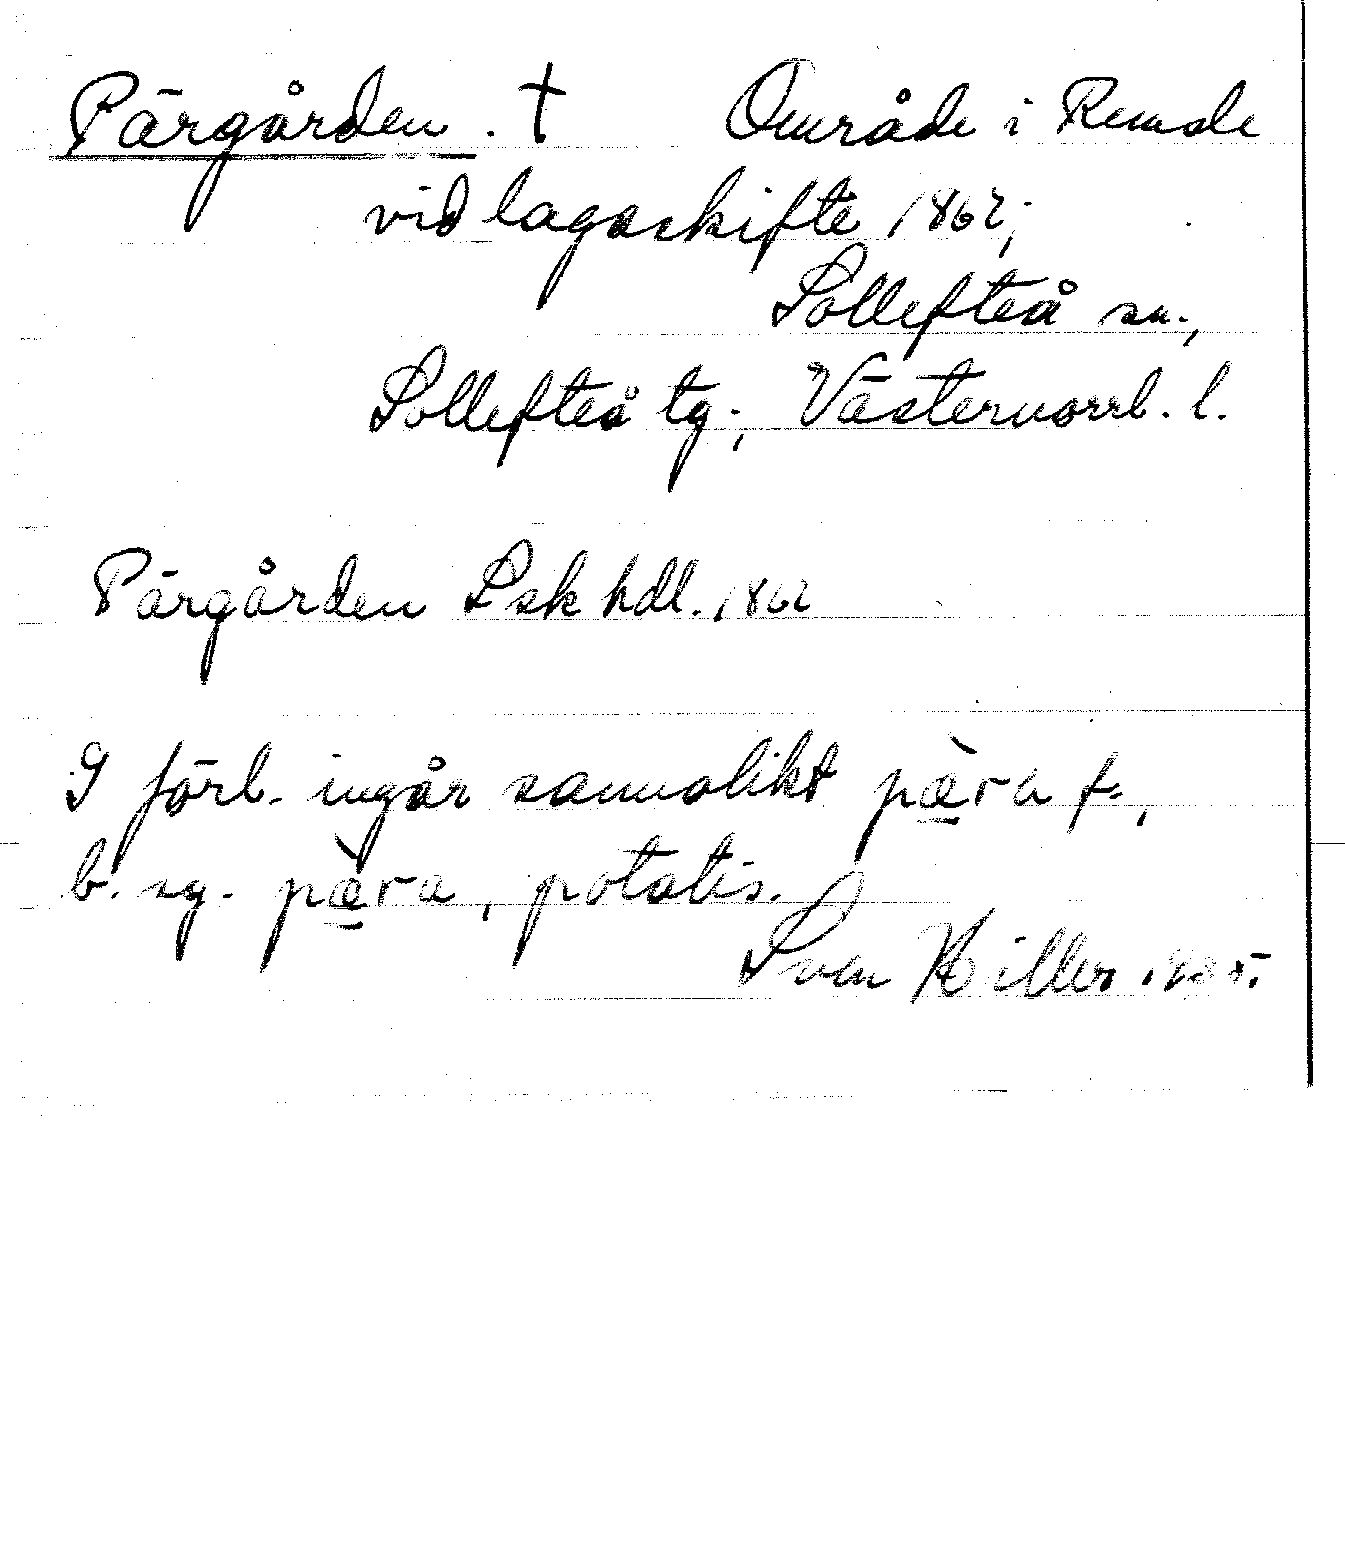 Pärgården. † Område i Remsle
vid lagaskifte 1862;
Sollefteå sn.,
Sollefteå tg., Västernorrl. l.
Pärgården Lsk hdl. 1862
I förl. ingår sannolikt pæ̀ra f.,
b. sg. pæ̀ra, potatis.
Sven Hiller 1935.